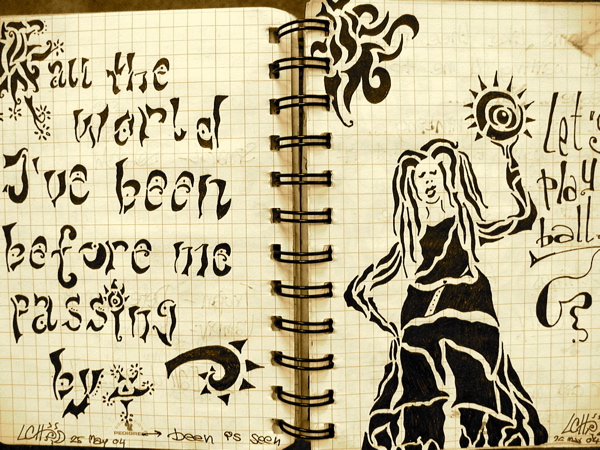 all the
world
I've been
before me
passing
by
25 May 04 → been is seen
Let's
play
ball.
or?